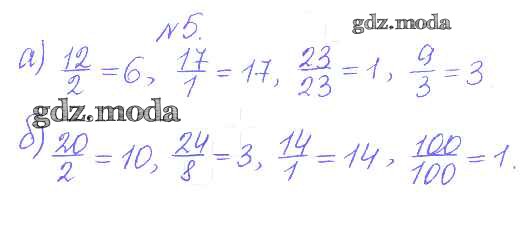 №5.
gdz.moda
а) 12/2 = 6, 17/1 = 17, 23/23 = 1, 9/3 = 3
gdz.moda
б) 20/2 = 10, 24/8 = 3, 14/1 = 14, 100/100 = 1.